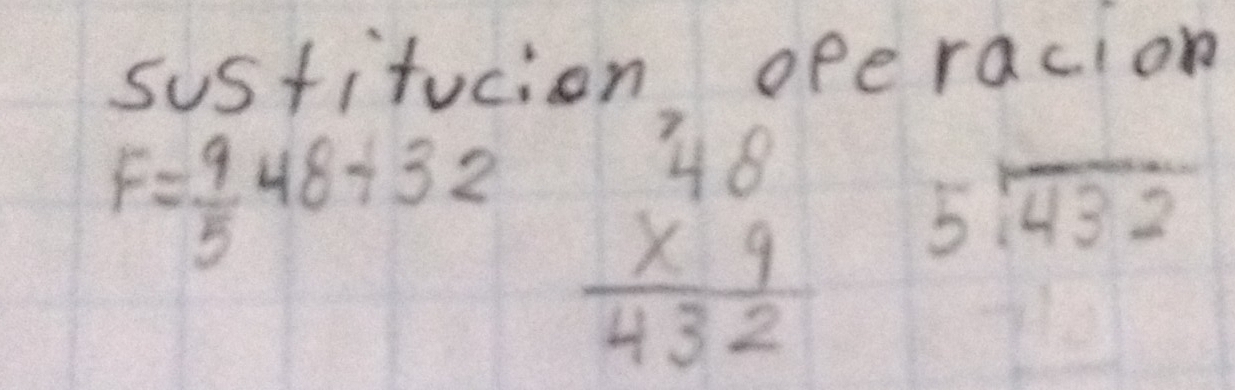 sustitucion, operacion
F=9/5 48+32
7
48
X 9
432
5 432